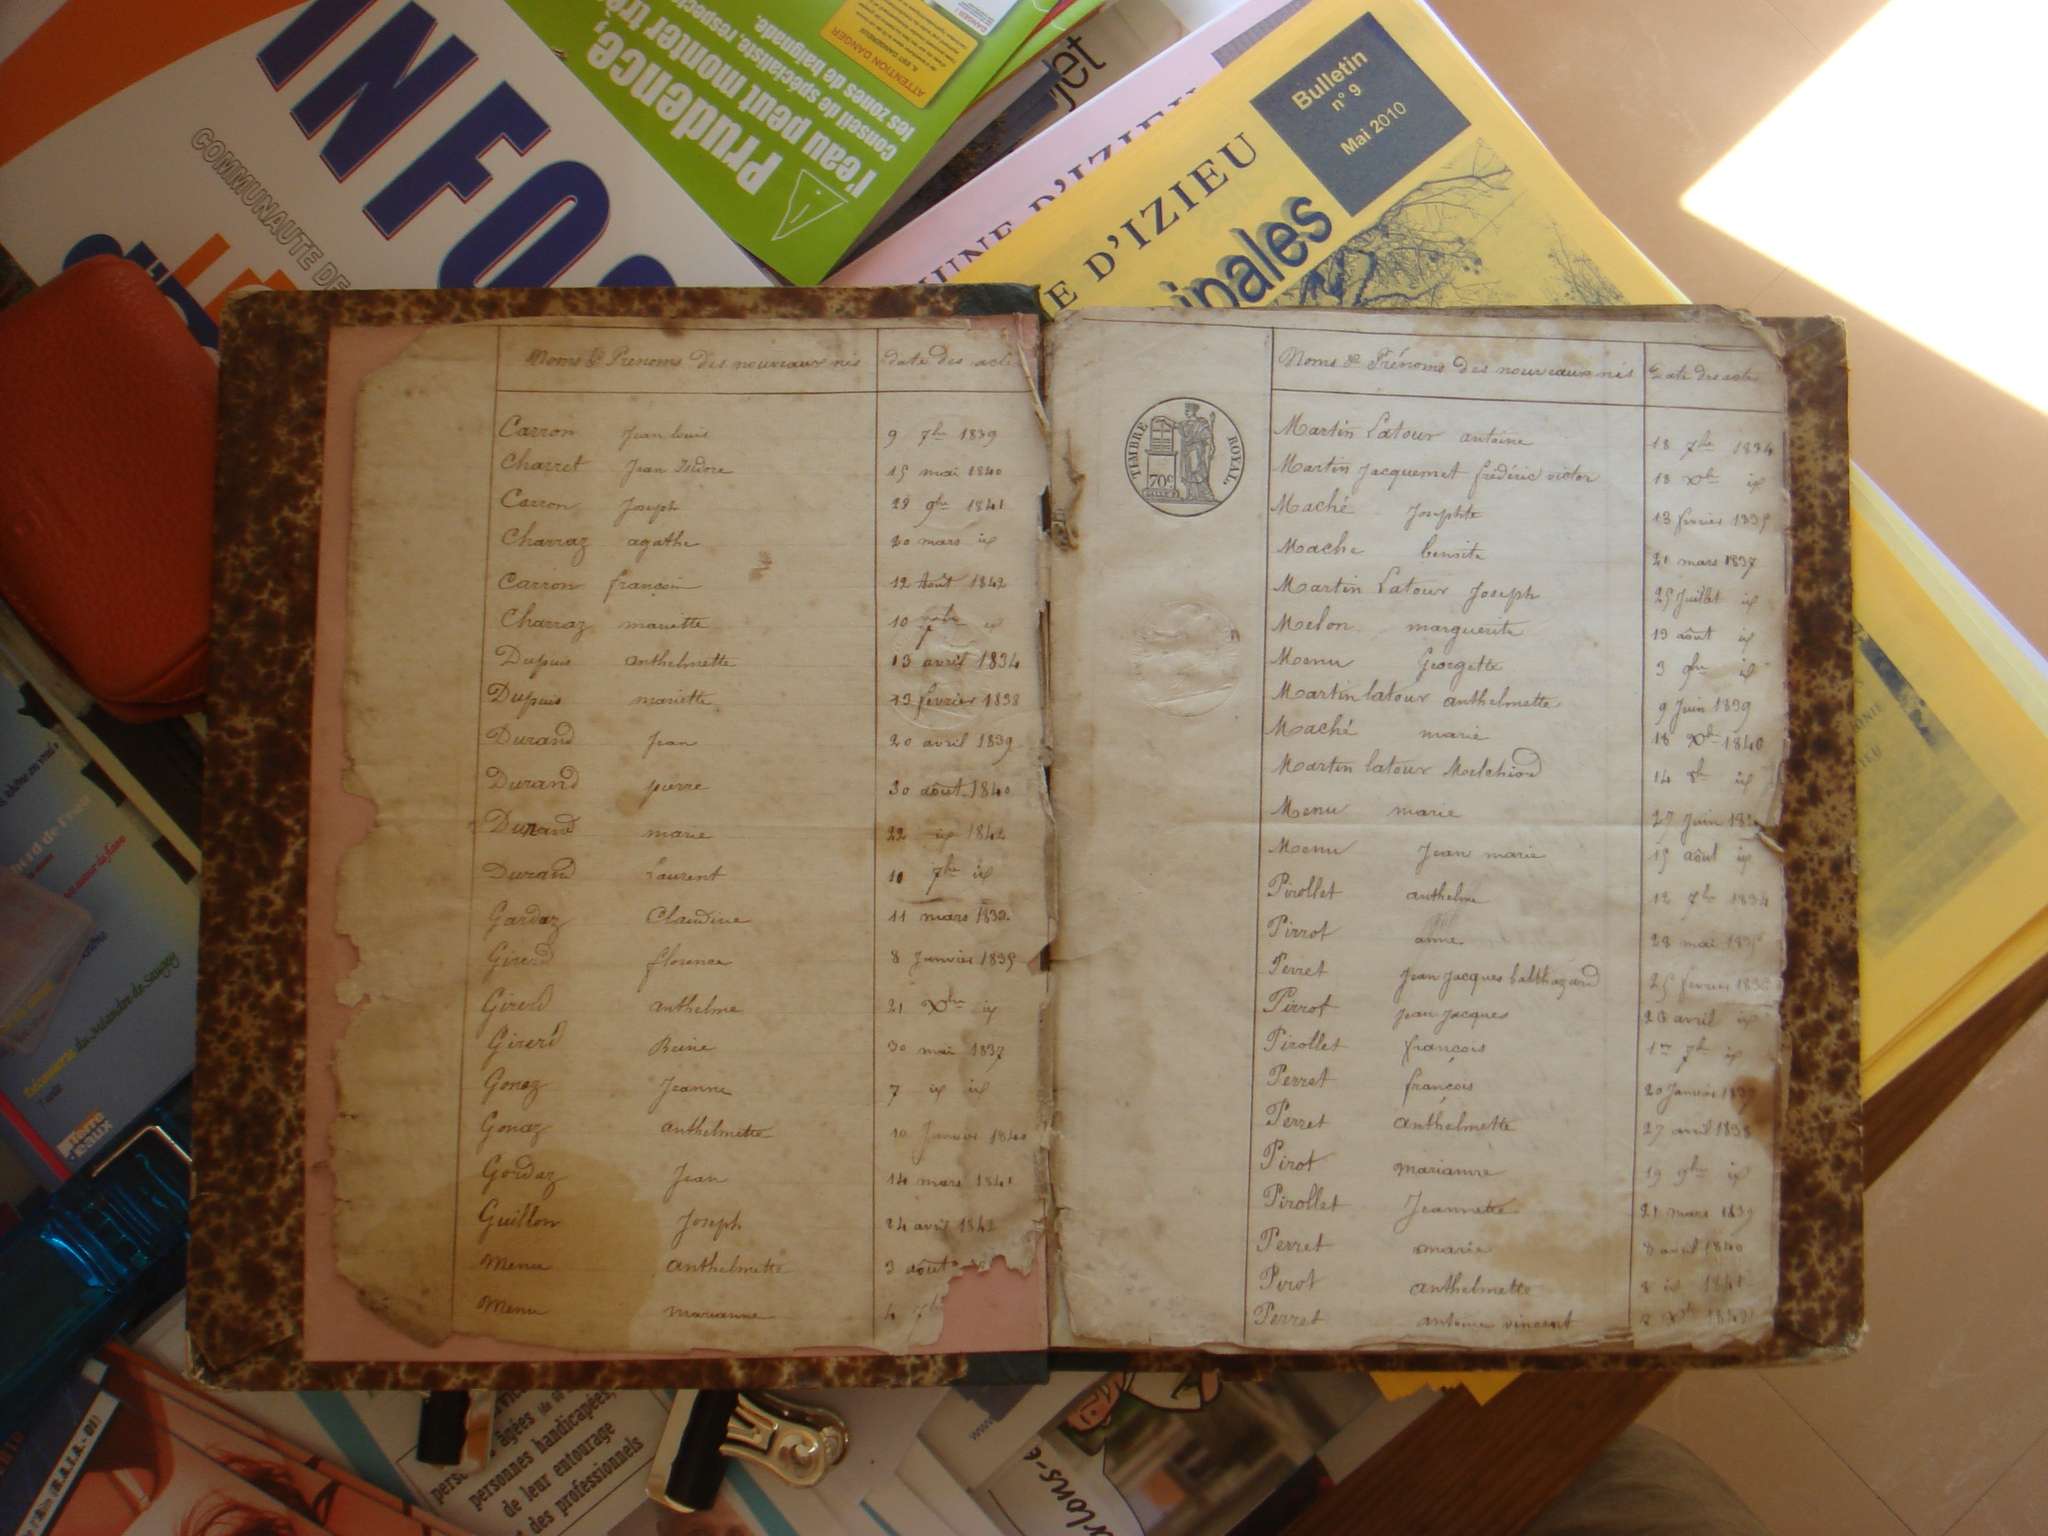 INFOS
COMMUNAUTE DE
Prudence,
l'eau peut monter
Conseil de spécialiste,
les zones de baignade.
ATTENTION DANGER
jet
UNE D'IZIEU
E D'IZIEU
ipales
Bulletin
n° 9
Mai 2010
Noms & Prénoms des nouveaux nés date des acte
Carron Jean louis 9 7bre 1839
Charret Jean Isidore 15 mai 1840
Carron Joseph 28 9bre 1841
Charraz agathe 20 mars id
Carron françois 12 Août 1842
Charraz mariette 10 id
Dupuis anthelmette 13 avril 1834
Dupuis mariette 13 février 1838
Durand Jean 20 avril 1839
Durand pierre 30 août 1840
Durand marie 22 id 1842
Durand Laurent 10 7bre id
Gardaz Claudine 11 mars
Girerd florence 8 Janvier 1835
Girerd anthelme 21 Xbre id
Girerd Reine 30 mai 1837
Gonaz Jeanne 7 id id
Gonaz anthelmette 10 Janvier 1840
Gordaz Jean 14 mars 1841
Guillon Joseph 24 avril 1842
Menu anthelmette 3 août
Menu marianne 4 7b
TIMBRE ROYAL
70c
Noms & Prénoms des nouveaux nés Date des actes
Martin Latour antoine 18 7bre 1834
Martin Jacquemet frédéric victor 18 Xbre id
Maché Josephte 13 février 1835
Mache benoite 21 mars 1837
Martin Latour Joseph 25 Juillet id
Melon marguerite 19 août id
Menu Georgette 3 9bre id
Martin latour anthelmette 9 Juin 1839
Maché marie 18 Xbre 1840
Martin latour Melchiord 14 8bre id
Menu marie 27 Juin
Menu Jean marie 15 août id
Pirollet anthelme 12 7bre 1834
Pirrot anne 28 mai
Perret Jean Jacques balthazard 25 février
Pirrot Jean Jacques 26 avril id
Pirollet françois 1er 7b id
Perret françois 20 Janvier
Perret anthelmette 27 avril 1838
Pirot marianne 19 9bre id
Pirollet Jeannette 21 mars 1839
Perret marie 8 avril 1840
Pirot anthelmette 8 id 1841
Perret antoine vincent
Découverte du Méandre du Saugey
Terre
d'eaux
âgées
personnes handicapées,
de leur entourage
des professionnels
www.
rlons-e